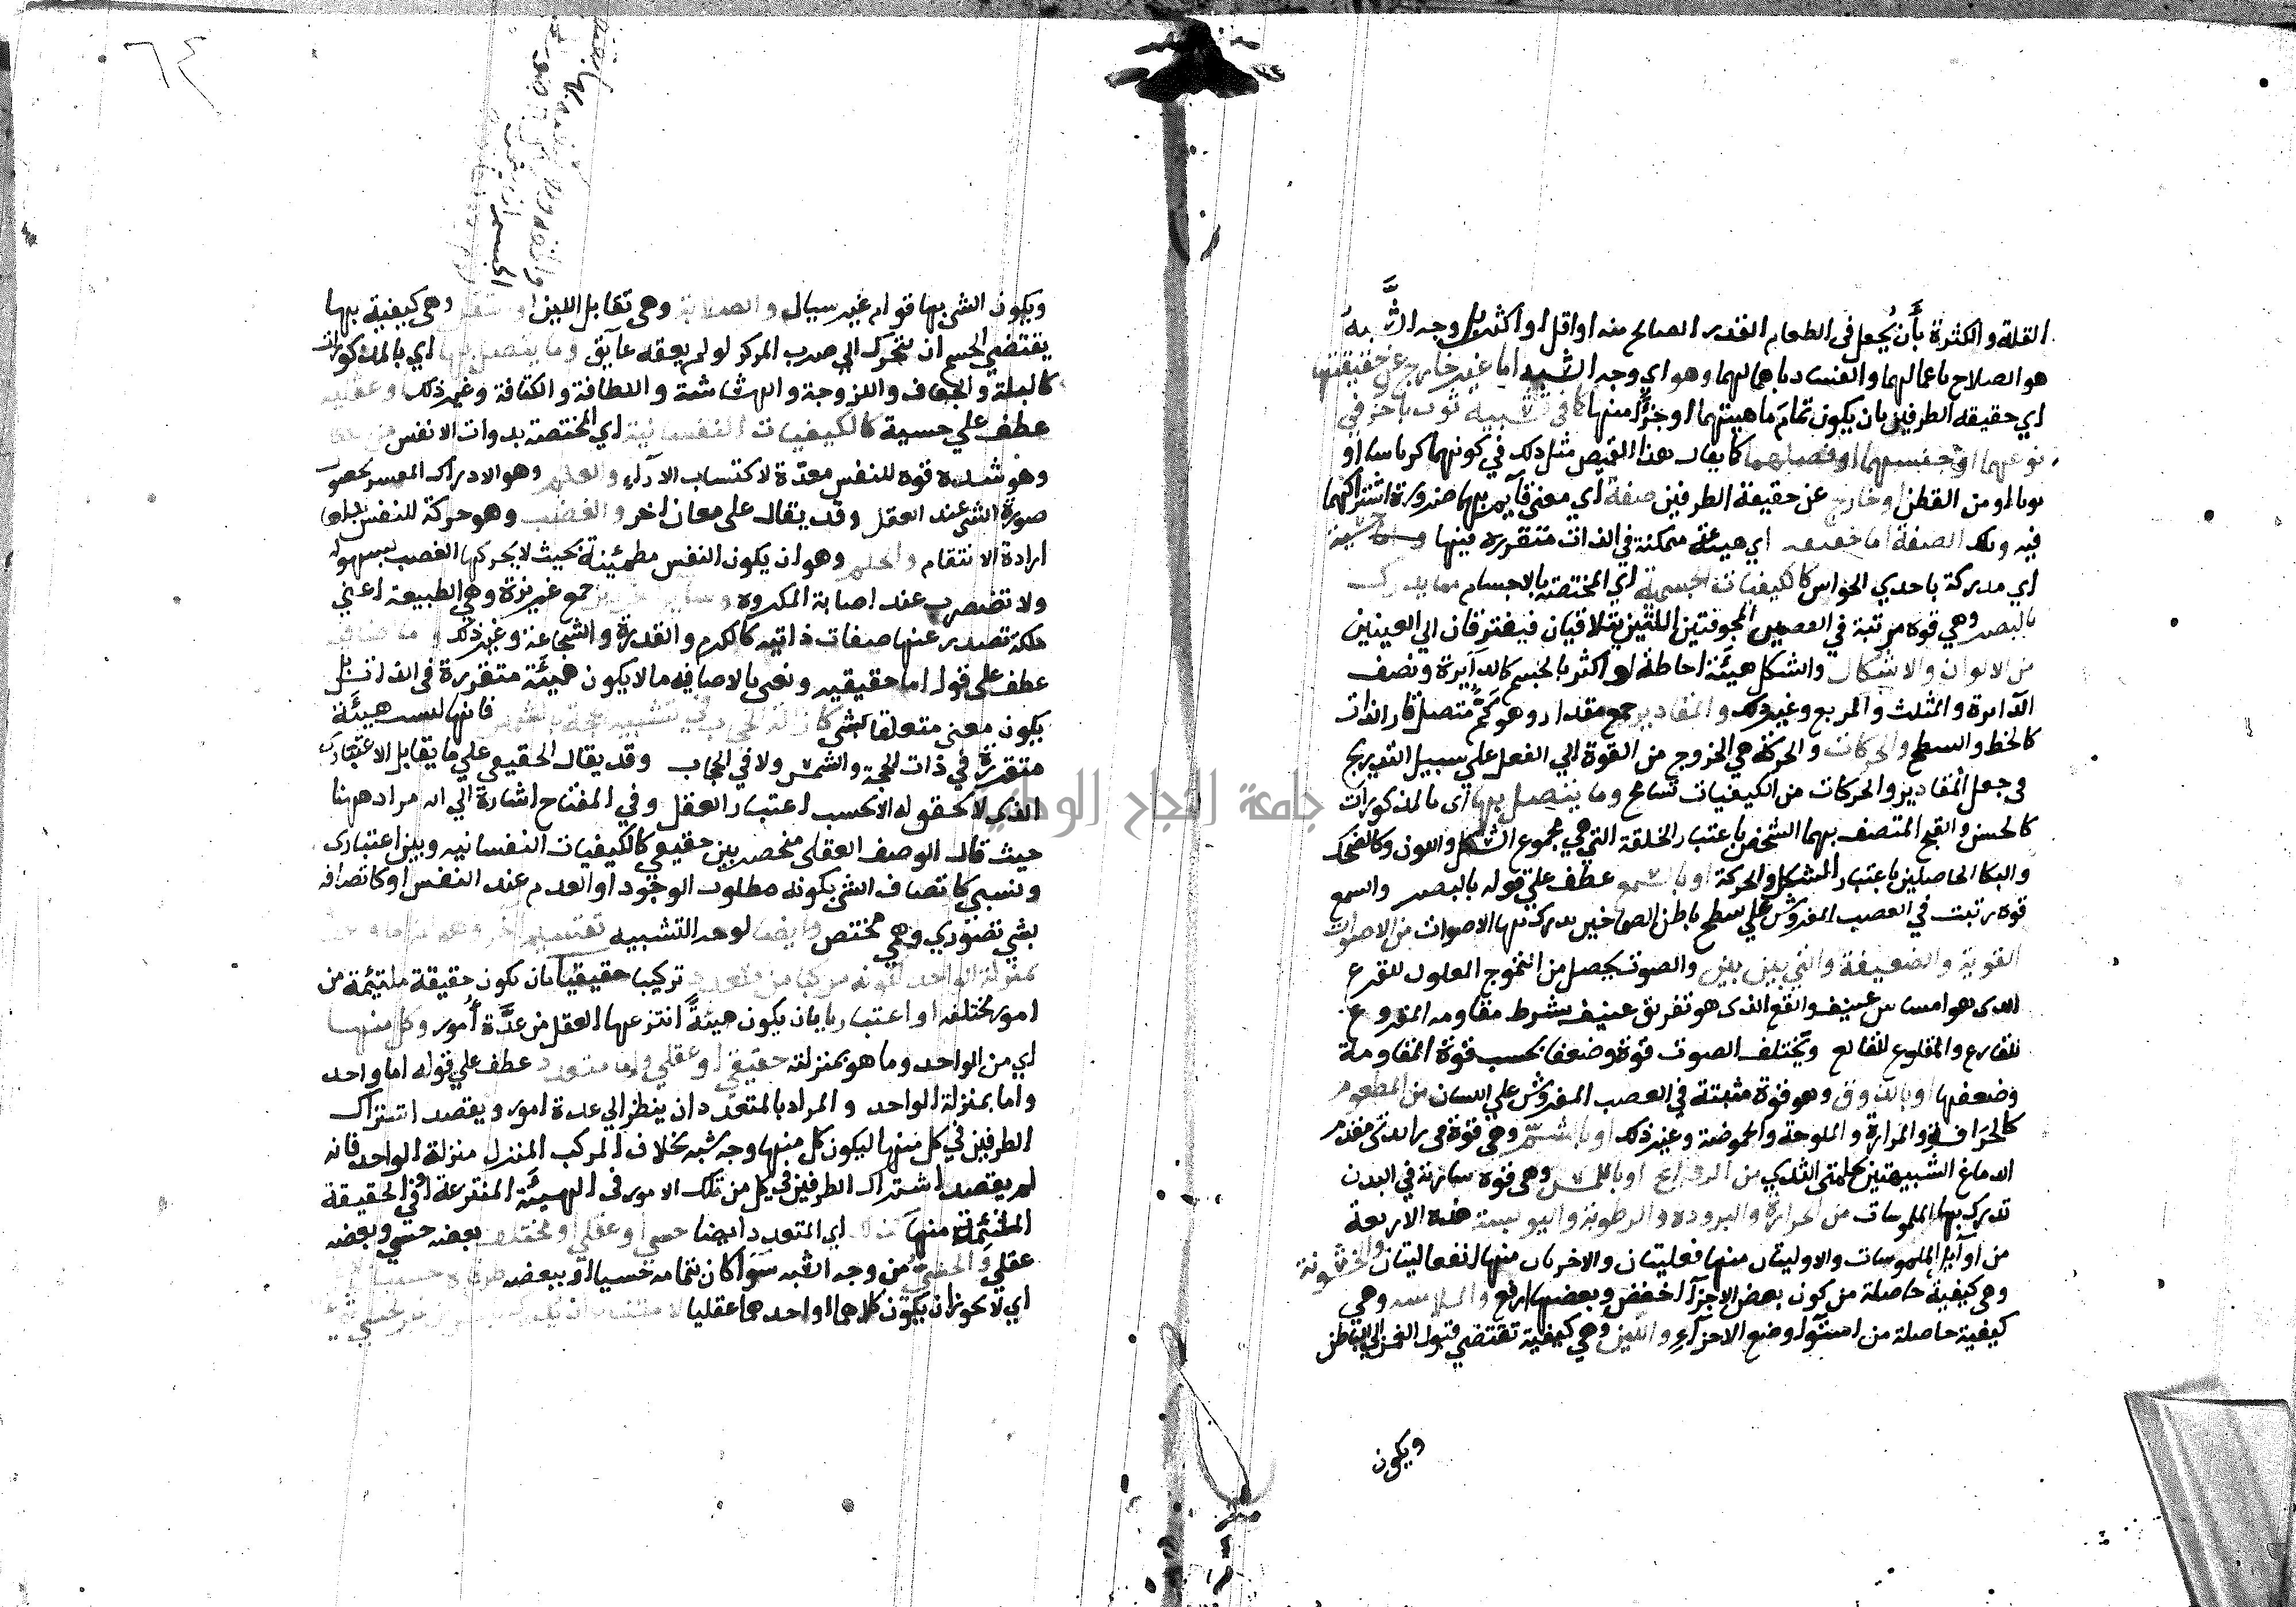 القلة والكثرة بأن يُجعل في الطعام القدر الصالح منه او اقل او اكثر بل وجه الشَّبه
هو الصلاح باعمالهما والفساد باهمالهما وهو اي وجه الشبه اما غير خارج عن حقيقتهما
اي حقيقه الطرفين بان يكون تمامَ ماهيتهما او جزًا منها كما في تشبيه ثوب باخر في
نوعهما او جنسهما او فصلهما كما يقال هذا القميص مثل ذلك في كونهما كرباسا او
ثوبا او من القطن او خارج عن حقيقة الطرفين صفة اي معنى قآيم بهما ضرورة اشتراكهما
فيه وتلك الصفة اما حقيقيه اي هيئة متمكنة في الذات متقررة فيها واما حسية
اي مدركة باحدي الحواس كالكيفيات الجسمية اي المختصة بالاجسام مما يدرك
بالبصر وهي قوة مرتبة في العصبين المجوفتين اللتين يتلاقيان فيفترقان الي العينين
من الالوان والاشكال والشكل هيئة احاطة او اكثر بالجسم كالدآيرة ونصف
الدآيرة والمثلث والمربع وغير ذلك والمقادير جمع مقدار وهو كَمٌّ متصل قار الذات
كالخط والسطح والحركات والحركة هي الخروج من القوة الي الفعل علي سبيل التدريج
وفي جعل المقادير والحركات من الكيفيات تسامح وما يتصل بها اي بالمذكورات
كالحسن والقبح المتصف بهما الشخص باعتبار الخلقة التي هي مجموع الشكل واللون وكالضحك
والبكا الحاصلين باعتبار الشكل والحركة او بالسمع عطف علي قوله بالبصر والسمع
قوة رتبت في العصب المفروش علي سطح باطن الصماخين يدرك بها الاصوات من الاصوات
القوية والضعيفة والتي بين بين والصوت يحصل من التموج المعلول للقرع
الذى هو امساس عنيف والقلع الذى هو تفريق عنيف بشرط مقاومه المقروع
للقارع والمقلوع للقالع ويختلف الصوت قوة وضعفا بحسب قوة المقاومة
وضعفها او بالذوق وهو قوة مثبتة في العصب المفروش علي اللسان من المطعوم
كالحرافة والمرارة والملوحة والحموضة وغير ذلك او بالشم وهي قوة في زائدتى مقدم
الدماغ الشبيهتين بحلمتى الثدي من الروايح او باللمس وهي قوة سارية في البدن
تدرك بها الملموسات من الحرارة والبرودة والرطوبة واليبوسة هذه الاربعة
من اوآيل الملموسات والاوليتان منها فعليتان والاخريان منها انفعاليتان والخشونة
وهي كيفية حاصلة من كون بعض الاجزآ اخفض وبعضها ارفع والملاسة وهي
كيفية حاصلة من استوآ وضع الاجزآءِ واللين وهي كيفية تقتضي قبول الغمز الي الباطن
ويكون
٦٤
ويكون الشي بها قوام غير سيال والصلابة وهي تقابل اللين وهي كيفية بها
يقتضي الجسم ان يتحرك الي صوب المركز لو لم يعقه عآيق وما يتصل بها اي بالمذكورات
كالبلة والجفاف واللزوجة والهشاشة واللطافة والكثافة وغير ذلك او عقلية
عطف علي حسية كالكيفيات النفسانية اي المختصة بذوات الانفس
وهو شدة قوة للنفس معدّة لاكتساب الآراءِ والعلم وهو الادراك المفسر بحصول
صورة الشي عند العقل وقد يقال على معان اخر والغضب وهو حركة للنفس
ارادة الانتقام والحلم وهو ان يكون النفس مطمئينة بحيث لا يحركها الغضب بسهولة
ولا تضطرب عند اصابة المكروه جمع غريزة وهي الطبيعة اعني
ملكة تصدر عنها صفات ذاتيه كالكرم والقدرة والشجاعة وغير ذلك
عطف على قوله اما حقيقيه ونعني بالاضافيه ما لا يكون هيئَة متقررة في الذات بل
يكون معني متعلقا بشي كازالة الحجاب في تشبيه الحجة بالشمس فانها ليست هيئَة
متقررة في ذات الحجة والشمس ولا في الحجاب وقد يقال الحقيقي علي ما يقابل الاعتبارى
الذى لا تحقق له الا بحسب اعتبار العقل وفي المفتاح اشارة الي انه مراد ههنا
حيث قال الوصف العقلى منحصر بين حقيقي كالكيفيات النفسانيه وبين اعتبارى
ونسبي كاتصاف الشي بكونه مطلوب الوجود او العدم عند النفس او كاتصافه
بشي تصوري وهمي مختص وايضا لوجه التشبيه تقسيم اخر
بمنزلة الواحد لكونه مركبا من متعدد تركيب حقيقيا بان يكون حقيقة ملتئمة من
امور مختلفه او اعتباريا بان يكون هيئةً انتزعها العقل من عدَّة أُمور وكل منهما
اي من الواحد وما هو بمنزلة حقيقي او عقلي واما متعدد عطف علي قوله اما واحد
واما بمنزلة الواحد والمراد بالمتعدد ان ينظر الي عدة امور ويقصد اشتراك
الطرفين في كل منها ليكون كل منها وجه شبه بخلاف المركب المنزل منزلة الواحد فانه
لم يقصد اشتراك الطرفين في كل من تلك الامور في الهيئَة المنتزعة او في الحقيقة
الملتئمة منها كذلك اي المتعدد ايضا حسي او عقلي او مختلف بعضه حسي وبعضه
عقلي والحسيُّ من وجه الشبه سَوَآ كان بتمامه حسيا او ببعضه طرفاه حسيان
اي لا يجوز ان يكون كلاهما او احدهما عقليا